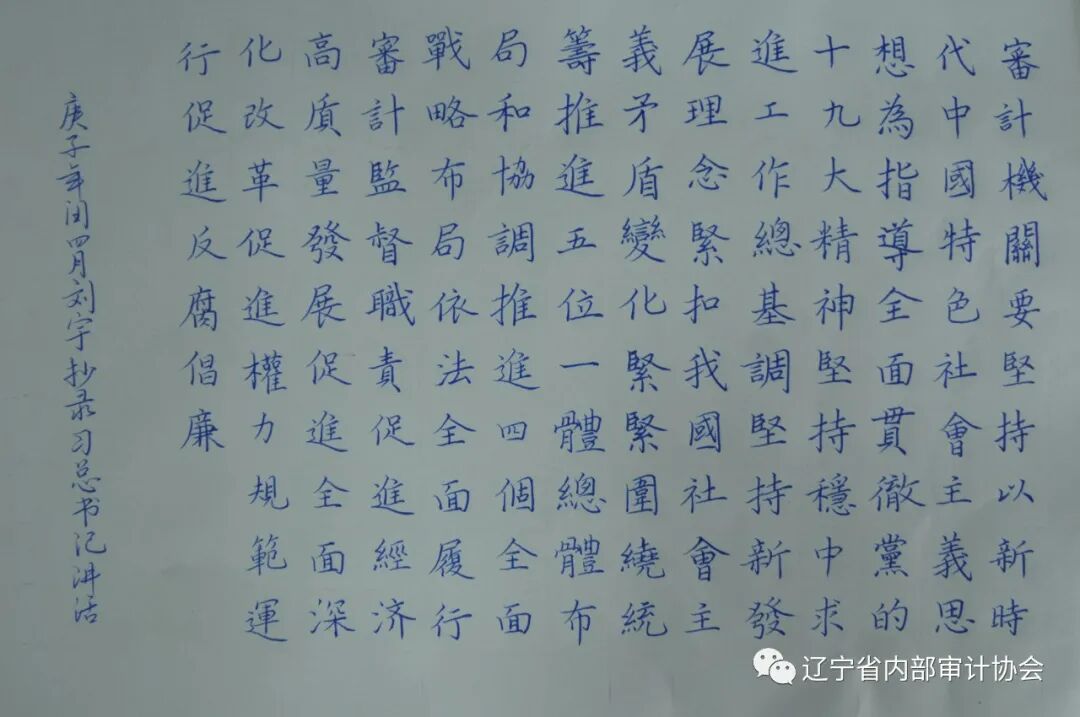 審計機關要堅持以新時
代中國特色社會主義思
想為指導全面貫徹黨的
十九大精神堅持穩中求
進工作總基調堅持新發
展理念緊扣我國社會主
義矛盾變化緊緊圍繞統
籌推進五位一體總體布
局和協調推進四個全面
戰略布局依法全面履行
審計監督職責促進經济
高質量發展促進全面深
化改革促進權力規範運
行促進反腐倡廉
庚子年闰四月刘宇抄录习总书记讲话
辽宁省内部审计协会